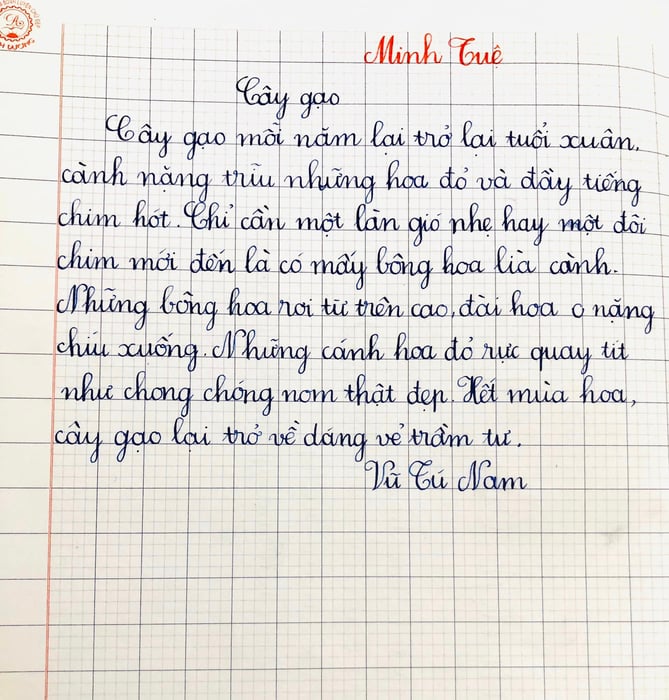 Minh Tuệ
Cây gạo
Cây gạo mỗi năm lại trở lại tuổi xuân,
cành nặng trĩu những hoa đỏ và đầy tiếng
chim hót. Chỉ cần một làn gió nhẹ hay một đôi
chim mới đến là có mấy bông hoa lìa cành.
Những bông hoa rơi từ trên cao, đài hoa o nặng
chúi xuống. Những cánh hoa đỏ rực quay tít
như chong chóng nom thật đẹp. Hết mùa hoa,
cây gạo lại trở về dáng vẻ trầm tư.
Vũ Tú Nam